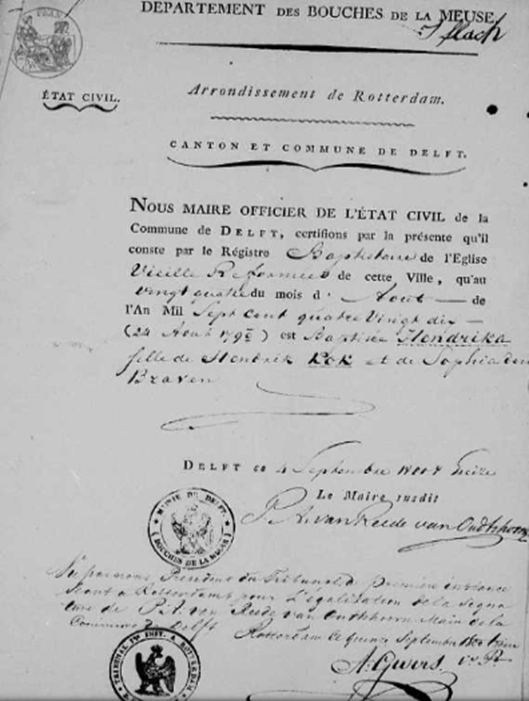 DEPARTEMENT DES BOUCHES DE LA MEUSE
ÉTAT CIVIL.
Arrondissement de Rotterdam.
CANTON ET COMMUNE DE DELFT.
NOUS MAIRE OFFICIER DE L'ÉTAT CIVIL de la
Commune de DELFT, certifions par la présente qu'il
conste par le Régistre Baptistaire de l'Eglise
Vieille Reformée de cette Ville, qu'au
vingt quatre du mois d' Aout de
l'An Mil Sept Cent quatre Vingt dix
(24 Aout 1790) est Baptisée Hendrika
fille de Hendrik Kok et de Sophia den
Braven
DELFT ce 4 Septembre 1800 & treize
Le Maire susdit
P. A. van Reede van Oudtshoorn
MAIRIE DE DELFT.
(BOUCHES DE LA MEUSE)
Vu par nous President du Tribunal de Premiere instance
Seant a Rotterdam pour Légalisation de la Signa
ture de van Reede van Oudtshoorn Maire de la
Commune de Delft
Rotterdam le quinze Septembre
TRIBUNAL INST. A ROTTERDAM